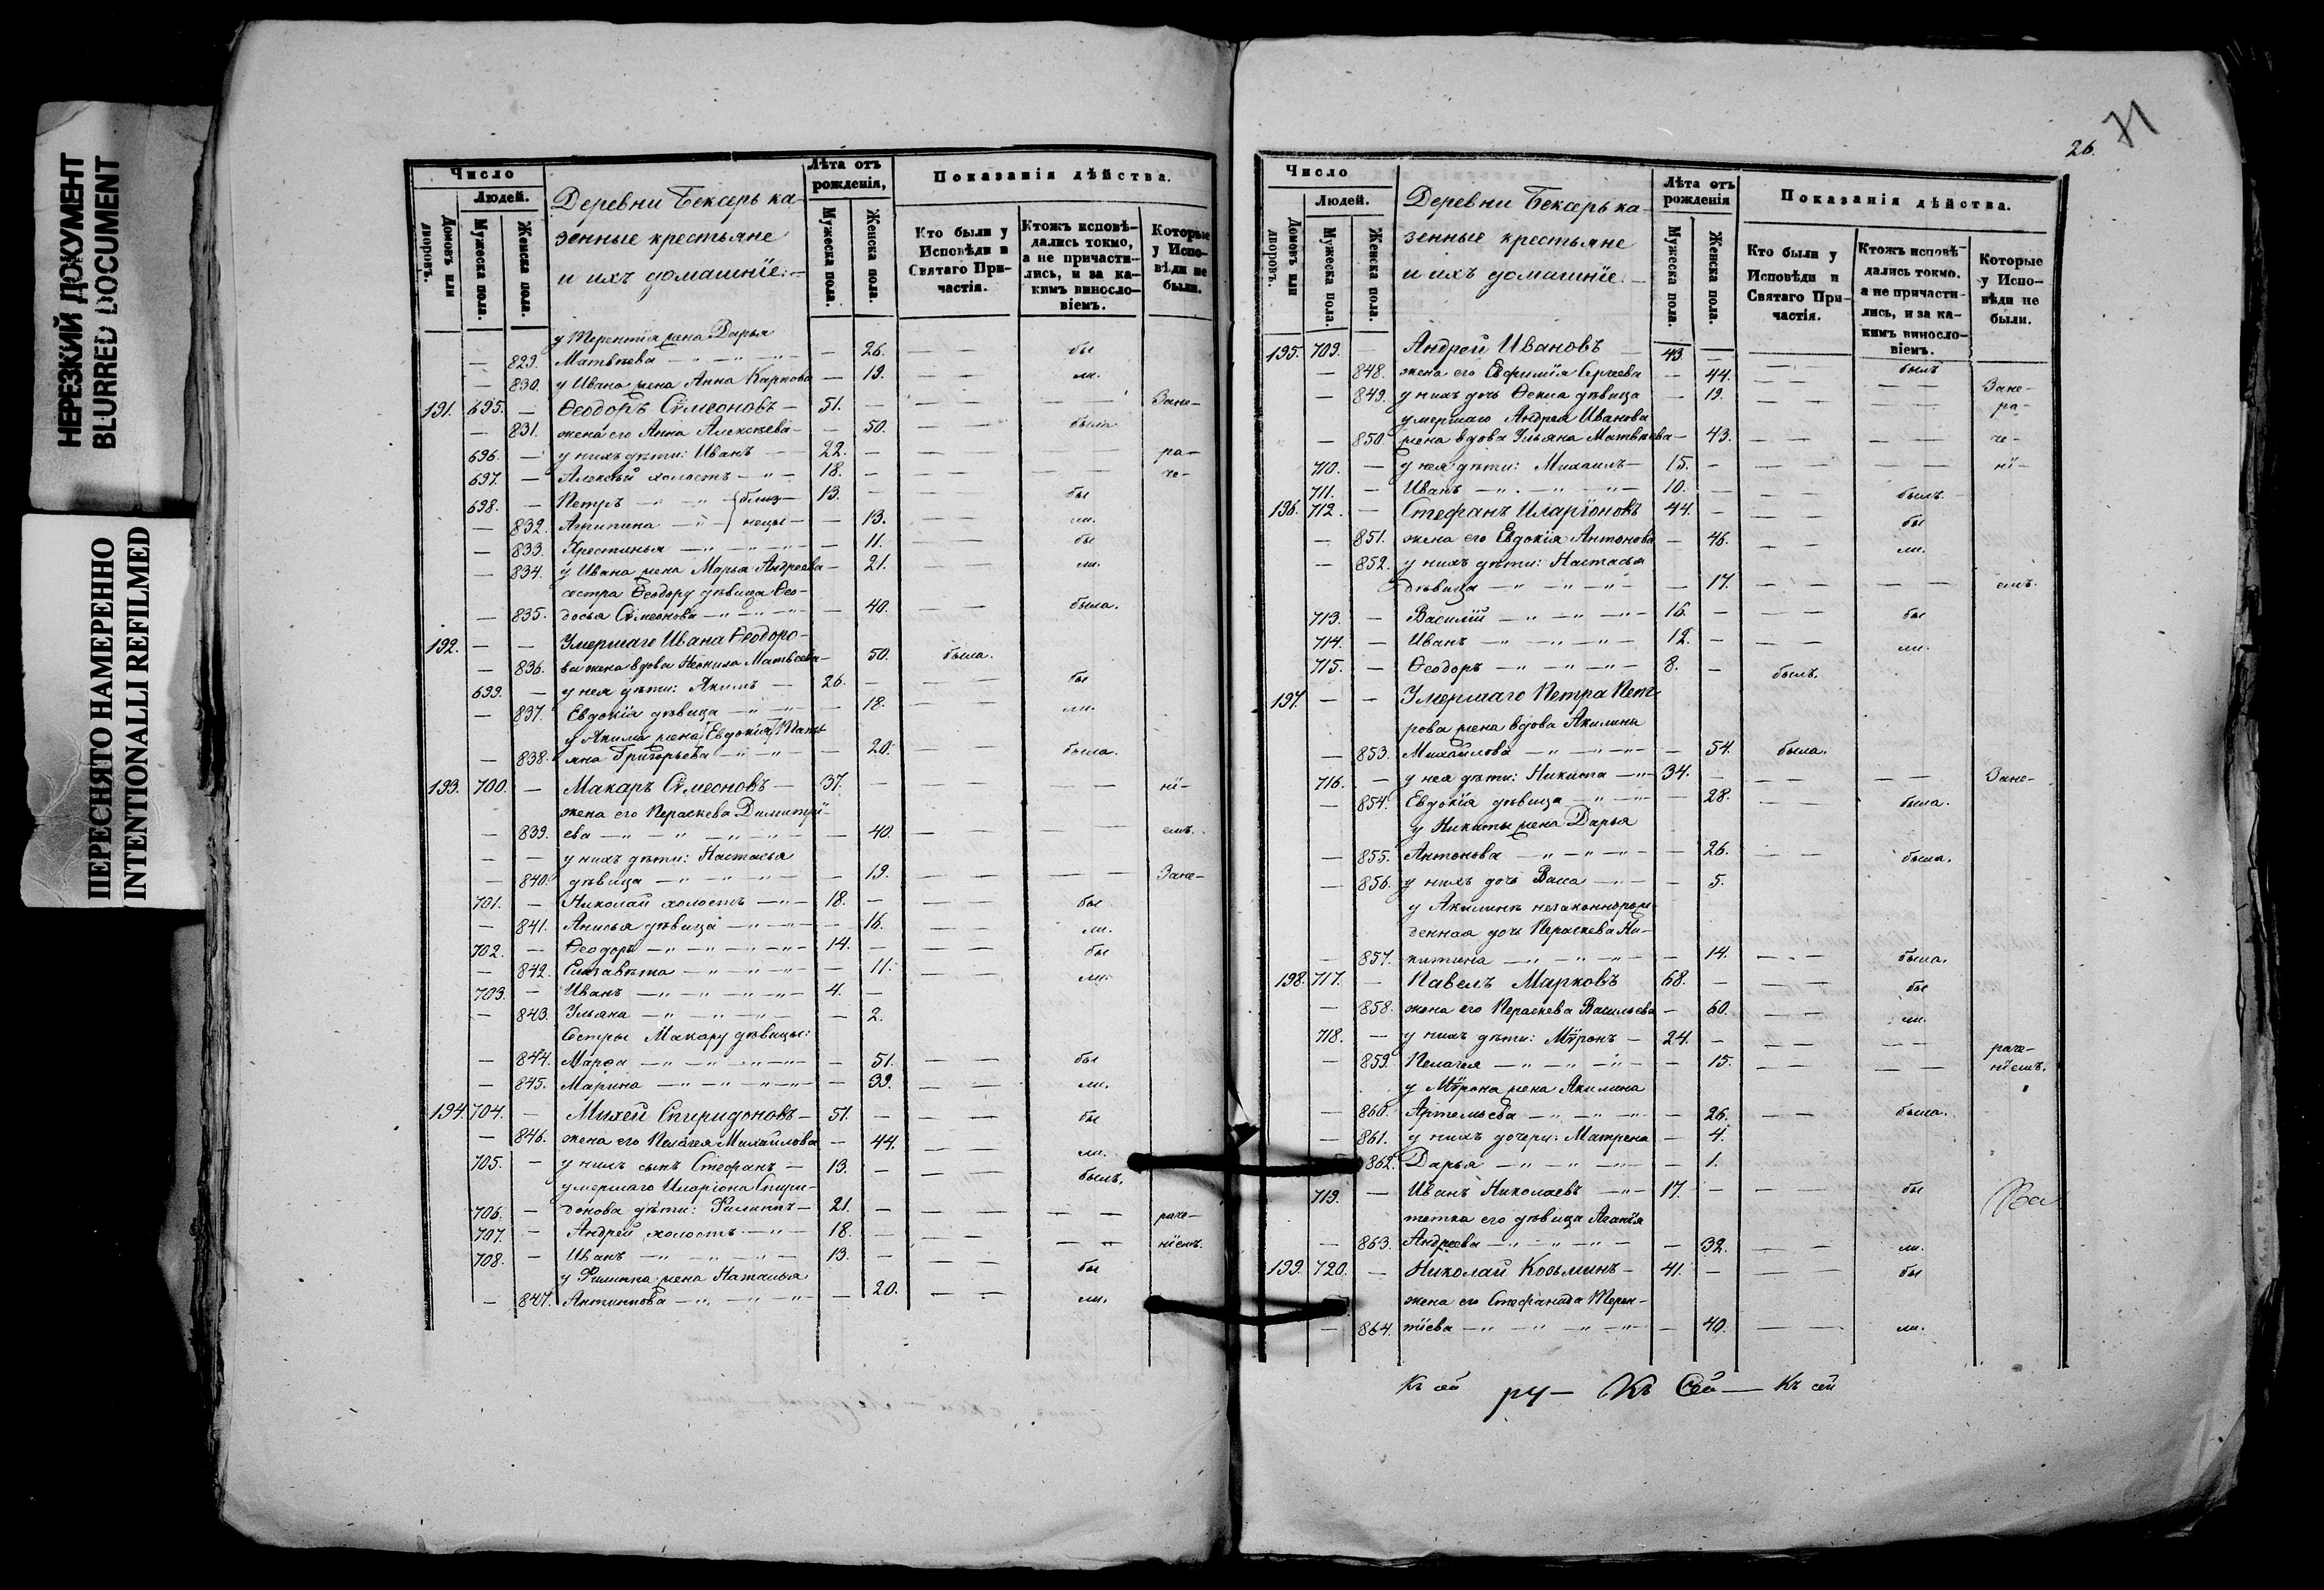 НЕРЕЗКИЙ ДОКУМЕНТ
BLURRED DOCUMENT
ПЕРЕСНЯТО НАМЕРЕННО
INTENTIONALLI REFILMED
Число
Людей.
Домовъ или дворовъ.
Мужеска пола.
Женска пола.
Деревни Бексерь ка-
зенные крестьяне
и ихъ домашніе:
Лѣта отъ рожденія,
Мужеска пола.
Женска пола.
Показанія дѣйства.
Кто были у Исповѣди и Святаго Причастія.
Ктожъ исповѣдались токмо, а не причастились, и за какимъ винословіемъ.
Которые у Исповѣди не были.
у Терентія жена Дарья
— 829. Матвѣева — 26. — — бы
— 830. у Ивана жена Анна Карпова — 19. — — ли.
191. 695. — Ѳеодоръ Сѵмеоновъ — 51. — — — — — Зане-
— 831. жена его Анна Алексѣева — — 50. — — была
696. — у нихъ дѣти: Иванъ — 22. — — — — — ра-
697. — Алексѣй холостъ — 18. — — — — — че-
698. — Петръ — близ- 13. — — — бы
— 832. Агрипина — нецы — — 13. — — ли.
— 833. Христинья — — 11. — — бы
— 834. у Ивана жена Марья Андреева — 21. — — ли.
сестра Ѳеодору дѣвица Ѳео-
— 835. досья Сѵмеонова — — 40. — — была.
192. — — Умершаго Ивана Ѳеодоро-
— 836. ва жена вдова Неонила Матвѣева — 50. была.
699. — у нея дѣти: Акимъ — 26. — — — бы
— 837. Евдокія дѣвица — — 18. — — ли.
у Акима жена Евдокія/Тать-
— 838. яна Григорьева — — 20. — — была.
193. 700. — Макаръ Сѵмеоновъ — 37. — — — — — ні-
жена его Параскева Димитрі-
— 839. ева — — 40. — — — — емъ.
— — у нихъ дѣти: Настасья
— 840. дѣвица — — 19. — — — — Зане-
701. — Николай холостъ — 18. — — — бы
— 841. Анисья дѣвица — — 16. — — ли.
702. — Ѳеодоръ — 14. — — — бы
— 842. Елизавета — — 11. — — ли.
703. — Иванъ — 4. —
— 843. Ульяна — — 2.
Сестры Макару дѣвицы:
— 844. Марѳа — — 51. — — бы
— 845. Марина — — 39. — — ли.
194. 704. — Михей Спиридоновъ — 51. — — — бы
— 846. жена его Пелагея Михайлова — 44. — — ли.
705. — у нихъ сынъ Стефанъ — 13. — — — былъ.
умершаго Иларіона Спири-
706. — донова дѣти: Филиппъ — 21. — — — — — раче-
707. — Андрей холостъ — 18. — — — — — ніемъ.
708. — Иванъ — 13. — — — бы
у Филиппа жена Наталья
— 847. Антипова — — 20. — — ли.
26. 71
Число
Людей.
Домовъ или дворовъ.
Мужеска пола.
Женска пола.
Деревни Бексерь ка-
зенные крестьяне
и ихъ домашніе:
Лѣта отъ рожденія
Мужеска пола.
Женска пола.
Показанія дѣйства.
Кто были у Исповѣди и Святаго Причастія.
Ктожъ исповѣдались токмо. а не причастились, и за какимъ винословіемъ.
Которые у Исповѣди не были.
195. 709. Андрей Ивановъ 43. — — — былъ
— 848. жена его Евфимія Сергеева — 44. — — — — Зане-
— 849. у нихъ дочь Ѳекла дѣвица — 19. — — — — ра-
умершаго Андрея Иванова
— 850. жена вдова Ульяна Матвѣева — 43. — — — — че-
710. — у нея дѣти: Михаилъ — 15. — — — — — ні-
711. — Иванъ — 10. — — — былъ.
196. 712. — Стефанъ Иларіоновъ 44. — — — бы
— 851. жена его Евдокія Антонова — 46. — — ли.
— 852. у нихъ дѣти: Настасья
дѣвица — — 17. — — — — емъ.
713. — Василій — 16. — — — бы
714. — Иванъ — 12. — — — ли.
715. — Ѳеодоръ — 8. — былъ.
197. — — Умершаго Петра Пет-
рова жена вдова Акилина
— 853. Михайлова — — 54. была.
716. — у нея дѣти: Никита — 34. — — — Зане-
— 854. Евдокія дѣвица — — 28. — была.
у Никиты жена Дарья
— 855. Антонова — — 26. — — была.
— 856. у нихъ дочь Васса — — 5.
у Акилины незаконнорож-
денная дочь Параскева Ни-
— 857. китина — — 14. — — была.
198. 717. — Павелъ Марковъ 68. — — — бы
— 858. жена его Параскева Васильева — 60. — — ли.
718. — у нихъ дѣти: Мѵронъ — 24. — — — — — раче-
— 859. Пелагея — — 15. — — — — ніемъ.
у Мѵрона жена Акилина
— 860. Артемьева — — 26. — — была.
— 861. у нихъ дочери: Матрена — 4.
862. Дарья — — 1.
719. — Иванъ Николаевъ — 17. — — — бы
тетка его дѣвица Агапія
— 863. Андреева — — 32. — — ли.
199. 720. — Николай Козьминъ — 41. — — — бы
жена его Стефанида Терен-
— 864. тіева — — 40. — — ли.
Къ сей ру— Къ Сей — Къ сей